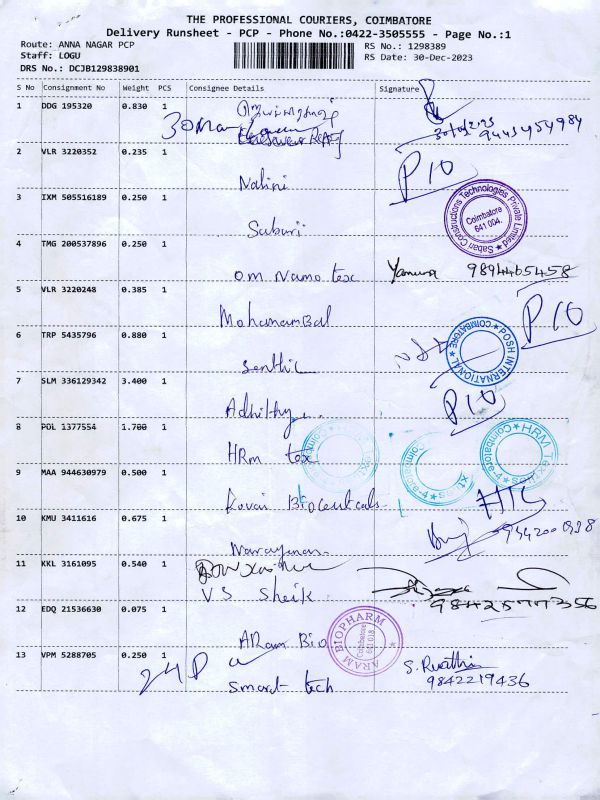 THE PROFESSIONAL COURIERS, COIMBATORE
Delivery Runsheet - PCP - Phone No.:0422-3505555 - Page No.:1
Route: ANNA NAGAR PCP
Staff: LOGU
DRS No.: DCJB129838901
RS No.: 1298389
RS Date: 30-Dec-2023
S No Consignment No Weight PCS Consignee Details Signature
1 DDG 195320 0.830 1
30/12/23
2 VLR 3220352 0.235 1
Nalini P10
3 IXM 505516189 0.250 1
Saburi
Saban Constructions Technologies Private Limited ★ Coimbatore 641 004.
4 TMG 200537896 0.250 1
Om Namo tex Yamuna 9894465458
5 VLR 3220248 0.385 1
Mohanambal P10
6 TRP 5435796 0.880 1
Senthil
POSH INTERNATIONAL ★ COIMBATORE ★
7 SLM 336129342 3.400 1
P10
8 POL 1377554 1.700 1
HRm tex
HRM Tex Coimbatore-4
9 MAA 944630979 0.500 1
Kovai Bioceuticals
10 KMU 3411616 0.675 1
Narayanan
11 KKL 3161095 0.540 1
VS Sheik
12 EDQ 21536630 0.075 1
ARam Bio
ARAM BIOPHARM Coimbatore 641 018
13 VPM 5288705 0.250 1
Smart tech
S. Revathi
9842219436